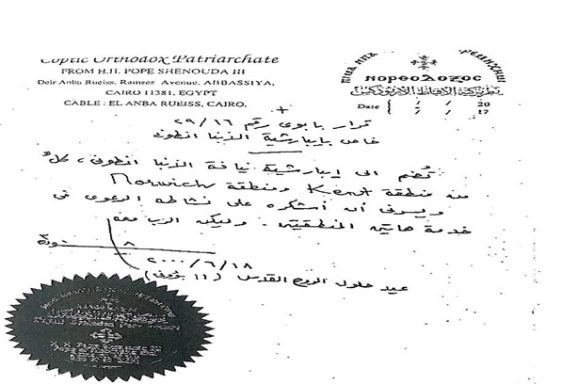 Coptic Orthodox Patriarchate
FROM H.H. POPE SHENOUDA III
Deir Anba Rueiss, Ramses Avenue, ABBASSIYA,
CAIRO 11381, EGYPT
CABLE : EL ANBA RUEISS, CAIRO.
بطريركية الأقباط الأرثوذكس
Date / / 20
17
قرار بابوى رقم ٢٩/١٦
خاص بإيبارشية الأنبا انطونى
تُضم الى إيبارشية نيافة الأنبا انطونى، كلٌ
من منطقة Kent ومنطقة Norwich
ويسرنى أن أشكره على نشاطه الرعوى فى
خدمة هاتين المنطقتين. وليكن الرب معه
شنودة
٢٠٠٠/٦/١٨
عيد حلول الروح القدس (١١ بؤونه)